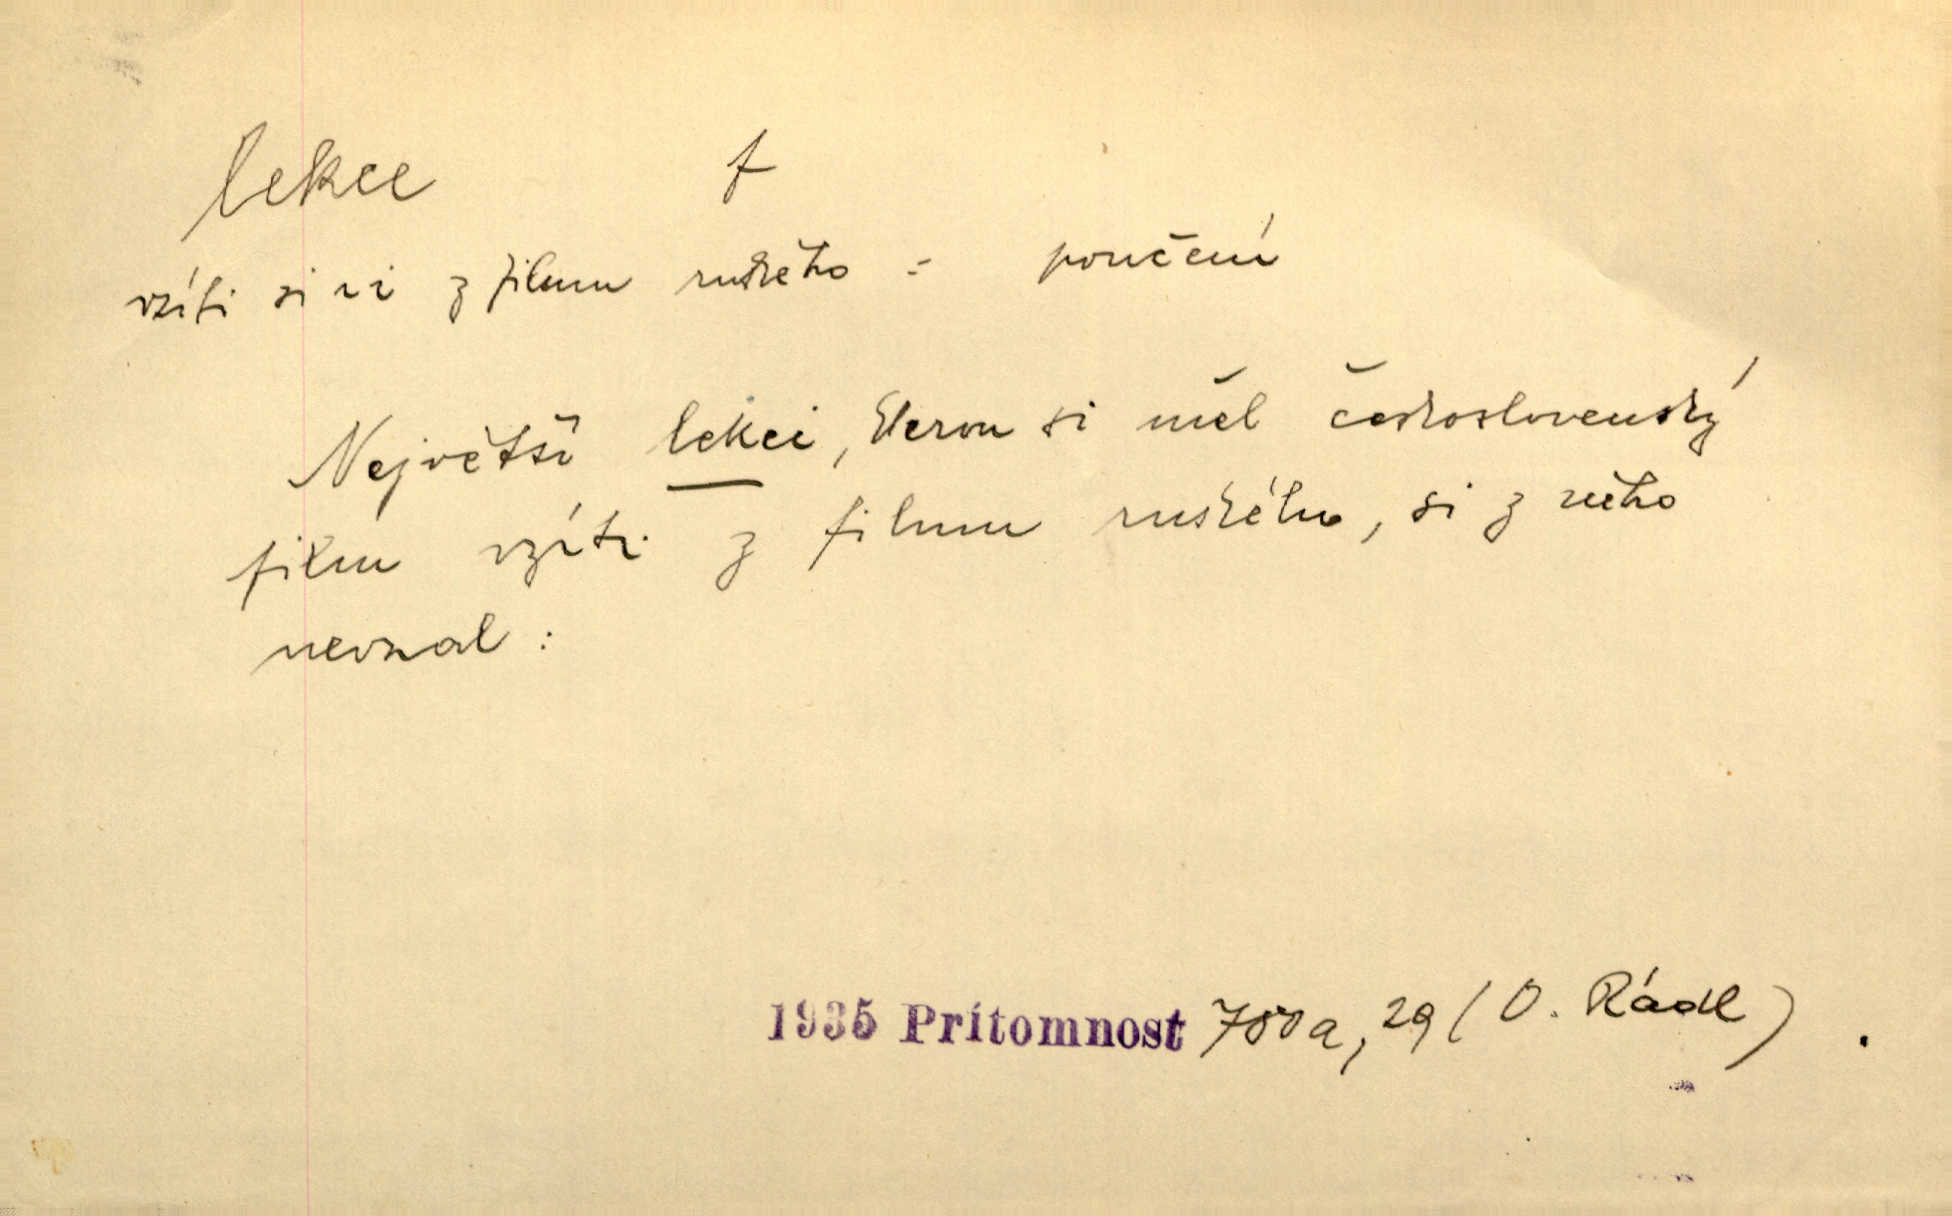 lekce f
vzíti si ii z filmu ruského = poučení
Největší lekci, kterou si měl československý
film vzíti z filmu ruského, si z něho
nevzal:
1935 Prítomnost 780a, 29 (O. Rádl)